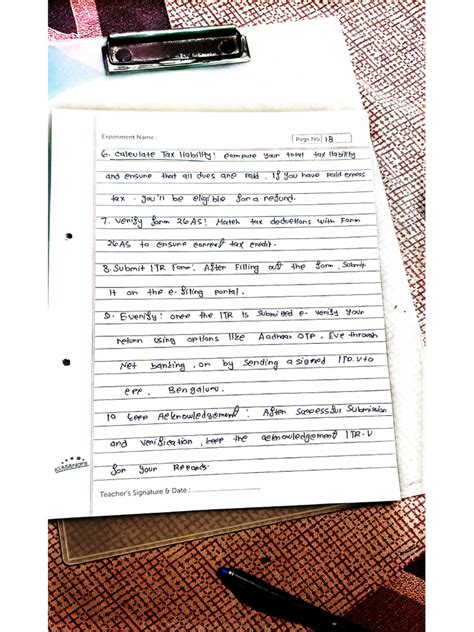 Experiment Name :
Page No. 18
6. Calculate Tax liability : compute your total tax liability
and ensure that all dues are paid. If you have paid excess
tax. you'll be eligible for a refund.
7. Verify form 26AS : Match tax deductions with Form
26AS to ensure correct tax credit.
8. Submit ITR form : After Filling out the form, Submit
It on the e-filing portal.
9. Everify : once the ITR Is Submitted e-verify your
return using options like Aadhaar OTP, Eve through
Net banking, or by sending a signed ITR-V to
cpc, Bengaluru.
10. keep Acknowledgement : After successful Submission
and verification, keep the acknowledgement ITR-V
for your Records.
KLASSNOTE
Teacher's Signature & Date :